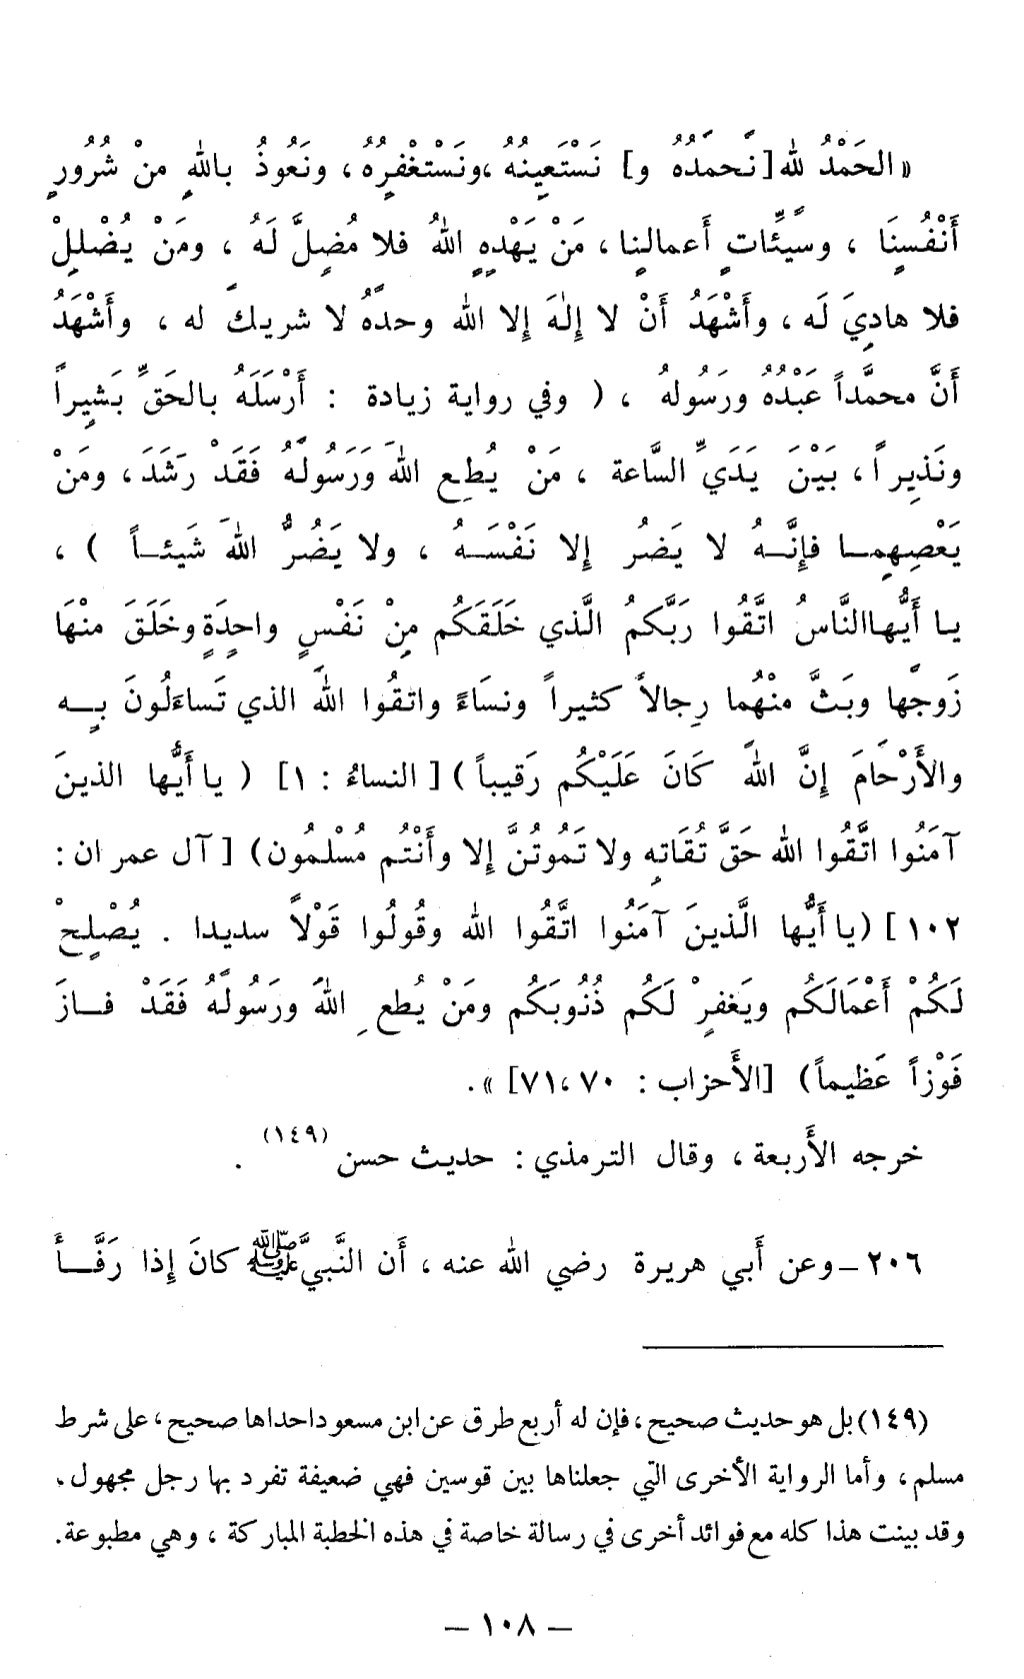 «الحَمْدُ لله [نَحمَدُه و] نَسْتَعِينُهُ، ونَسْتغْفِرُهُ، ونَعُوذُ باللهِ منْ شُرُورِ
أَنْفُسِنَا ، وسيِّئاتِ أَعمالِنا، مَنْ يَهْدِهِ اللهُ فلا مُضِلَّ لَهُ ، ومَنْ يُضْلِلِ
فلا هادِيَ لَه ، وأَشْهَدُ أَنْ لا إِلٰهَ إِلا الله وحدَهُ لا شريكَ له ، وأَشْهَدُ
أَنَّ محمَّداً عَبْدُهُ ورَسُولهُ ، ( وفي رواية زيادة : أَرْسَلَهُ بالحَقِّ بَشِيراً
ونَذِيراً ، بَيْنَ يَدَيِّ السَّاعة ، مَنْ يُطِعِ اللهَ وَرَسُولَهُ فَقَدْ رَشَدَ ، ومَنْ
يَعْصِهِمـا فإِنَّـهُ لا يَضرُ إِلا نَفْسَـهُ ، ولا يَضُرُّ اللهَ شَيئـاً ) ،
يـا أَيُّهاالنَّاسُ اتَّقُوا رَبَّكمُ الَّذي خَلَقَكُم مِنْ نَفْسٍ واحِدَةٍ وخَلَقَ منْهَا
زَوجَها وبَثَّ منْهُما رِجالاً كثيراً ونسَاءً واتقُوا اللهَ الذي تَساءَلُونَ بِـه
والأَرْحَامَ إِنَّ اللهَ كَانَ عَلَيْكُم رَقيباً ) [ النساءُ : ١] ( يا أَيُّها الذينَ
آمَنُوا اتَّقُوا الله حَقَّ تُقَاتِه ولا تَمُوتُنَّ إِلا وأَنْتُم مُسْلمُون) [ آل عمران :
١٠٢ ] (يا أَيُّها الَّذينَ آمَنُوا اتَّقُوا الله وقُولُوا قَوْلاً سديدا . يُصْلِحْ
لَكُمْ أَعْمَالَكُم ويَغفِرْ لَكُم ذُنُوبَكُم ومَنْ يُطعِ اللهَ ورَسُولَهُ فَقَدْ فـازَ
فَوْزاً عَظيماً) [الأَحزاب : ٧٠ ،٧١] ».
خرجه الأَربعة ، وقال الترمذي : حديث حسن (١٤٩) .
٢٠٦ ـ وعن أَبي هريرة رضي الله عنه ، أَن النَّبيَّ ﷺ كانَ إِذا رَفَّـأَ
(١٤٩) بل هو حديث صحيح ، فإن له أربع طرق عن ابن مسعود احداها صحيح ، على شرط
مسلم ، وأما الرواية الأخرى التي جعلناها بين قوسين فهي ضعيفة تفرد بها رجل مجهول .
وقد بينت هذا كله مع فوائد أخرى في رسالة خاصة في هذه الخطبة المباركة ، وهي مطبوعة .
— ١٠٨ —